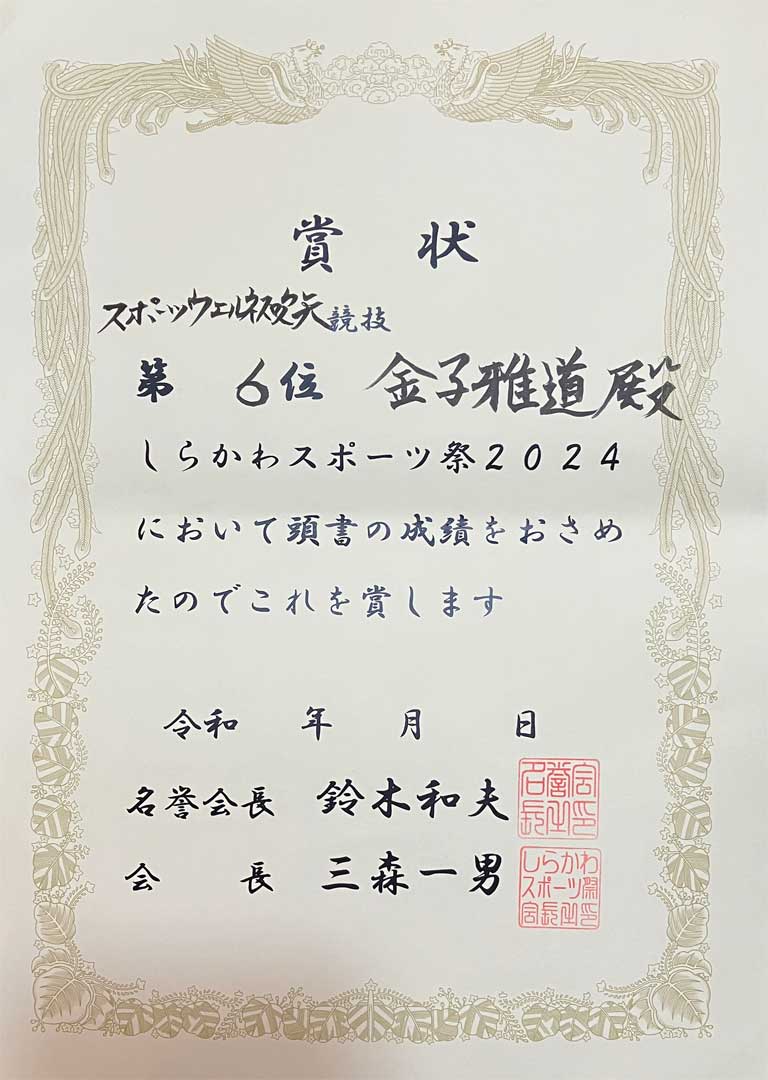 賞状
スポーツウェルネス吹矢競技
第 6位 金子雅道殿
しらかわスポーツ祭2024
において頭書の成績をおさめ
たのでこれを賞します
令和 年 月 日
名誉会長 鈴木和夫
会長 三森一男
名誉会長之印
しらかわスポーツ祭会長之印